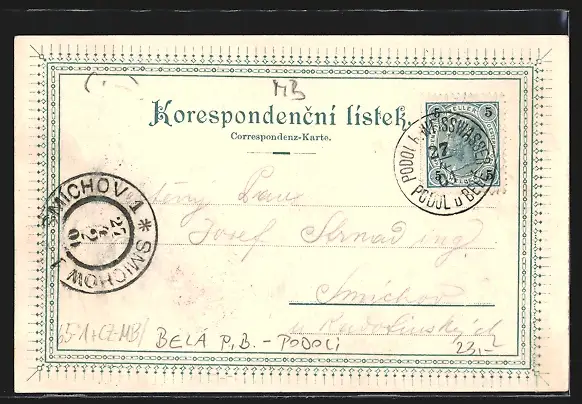 MB
Korespondenční lístek.
Correspondenz-Karte.
5 HELLER 5
5 5
PODOL b. WEISSWASSER
27
PODOL u BĚL
SMICHOV 1 * SMICHOW
27
2
01
Pan
Josef Strnad ing
Smíchov
651+CZ-MB/
BELÁ P. B. - PODOLÍ
23,-